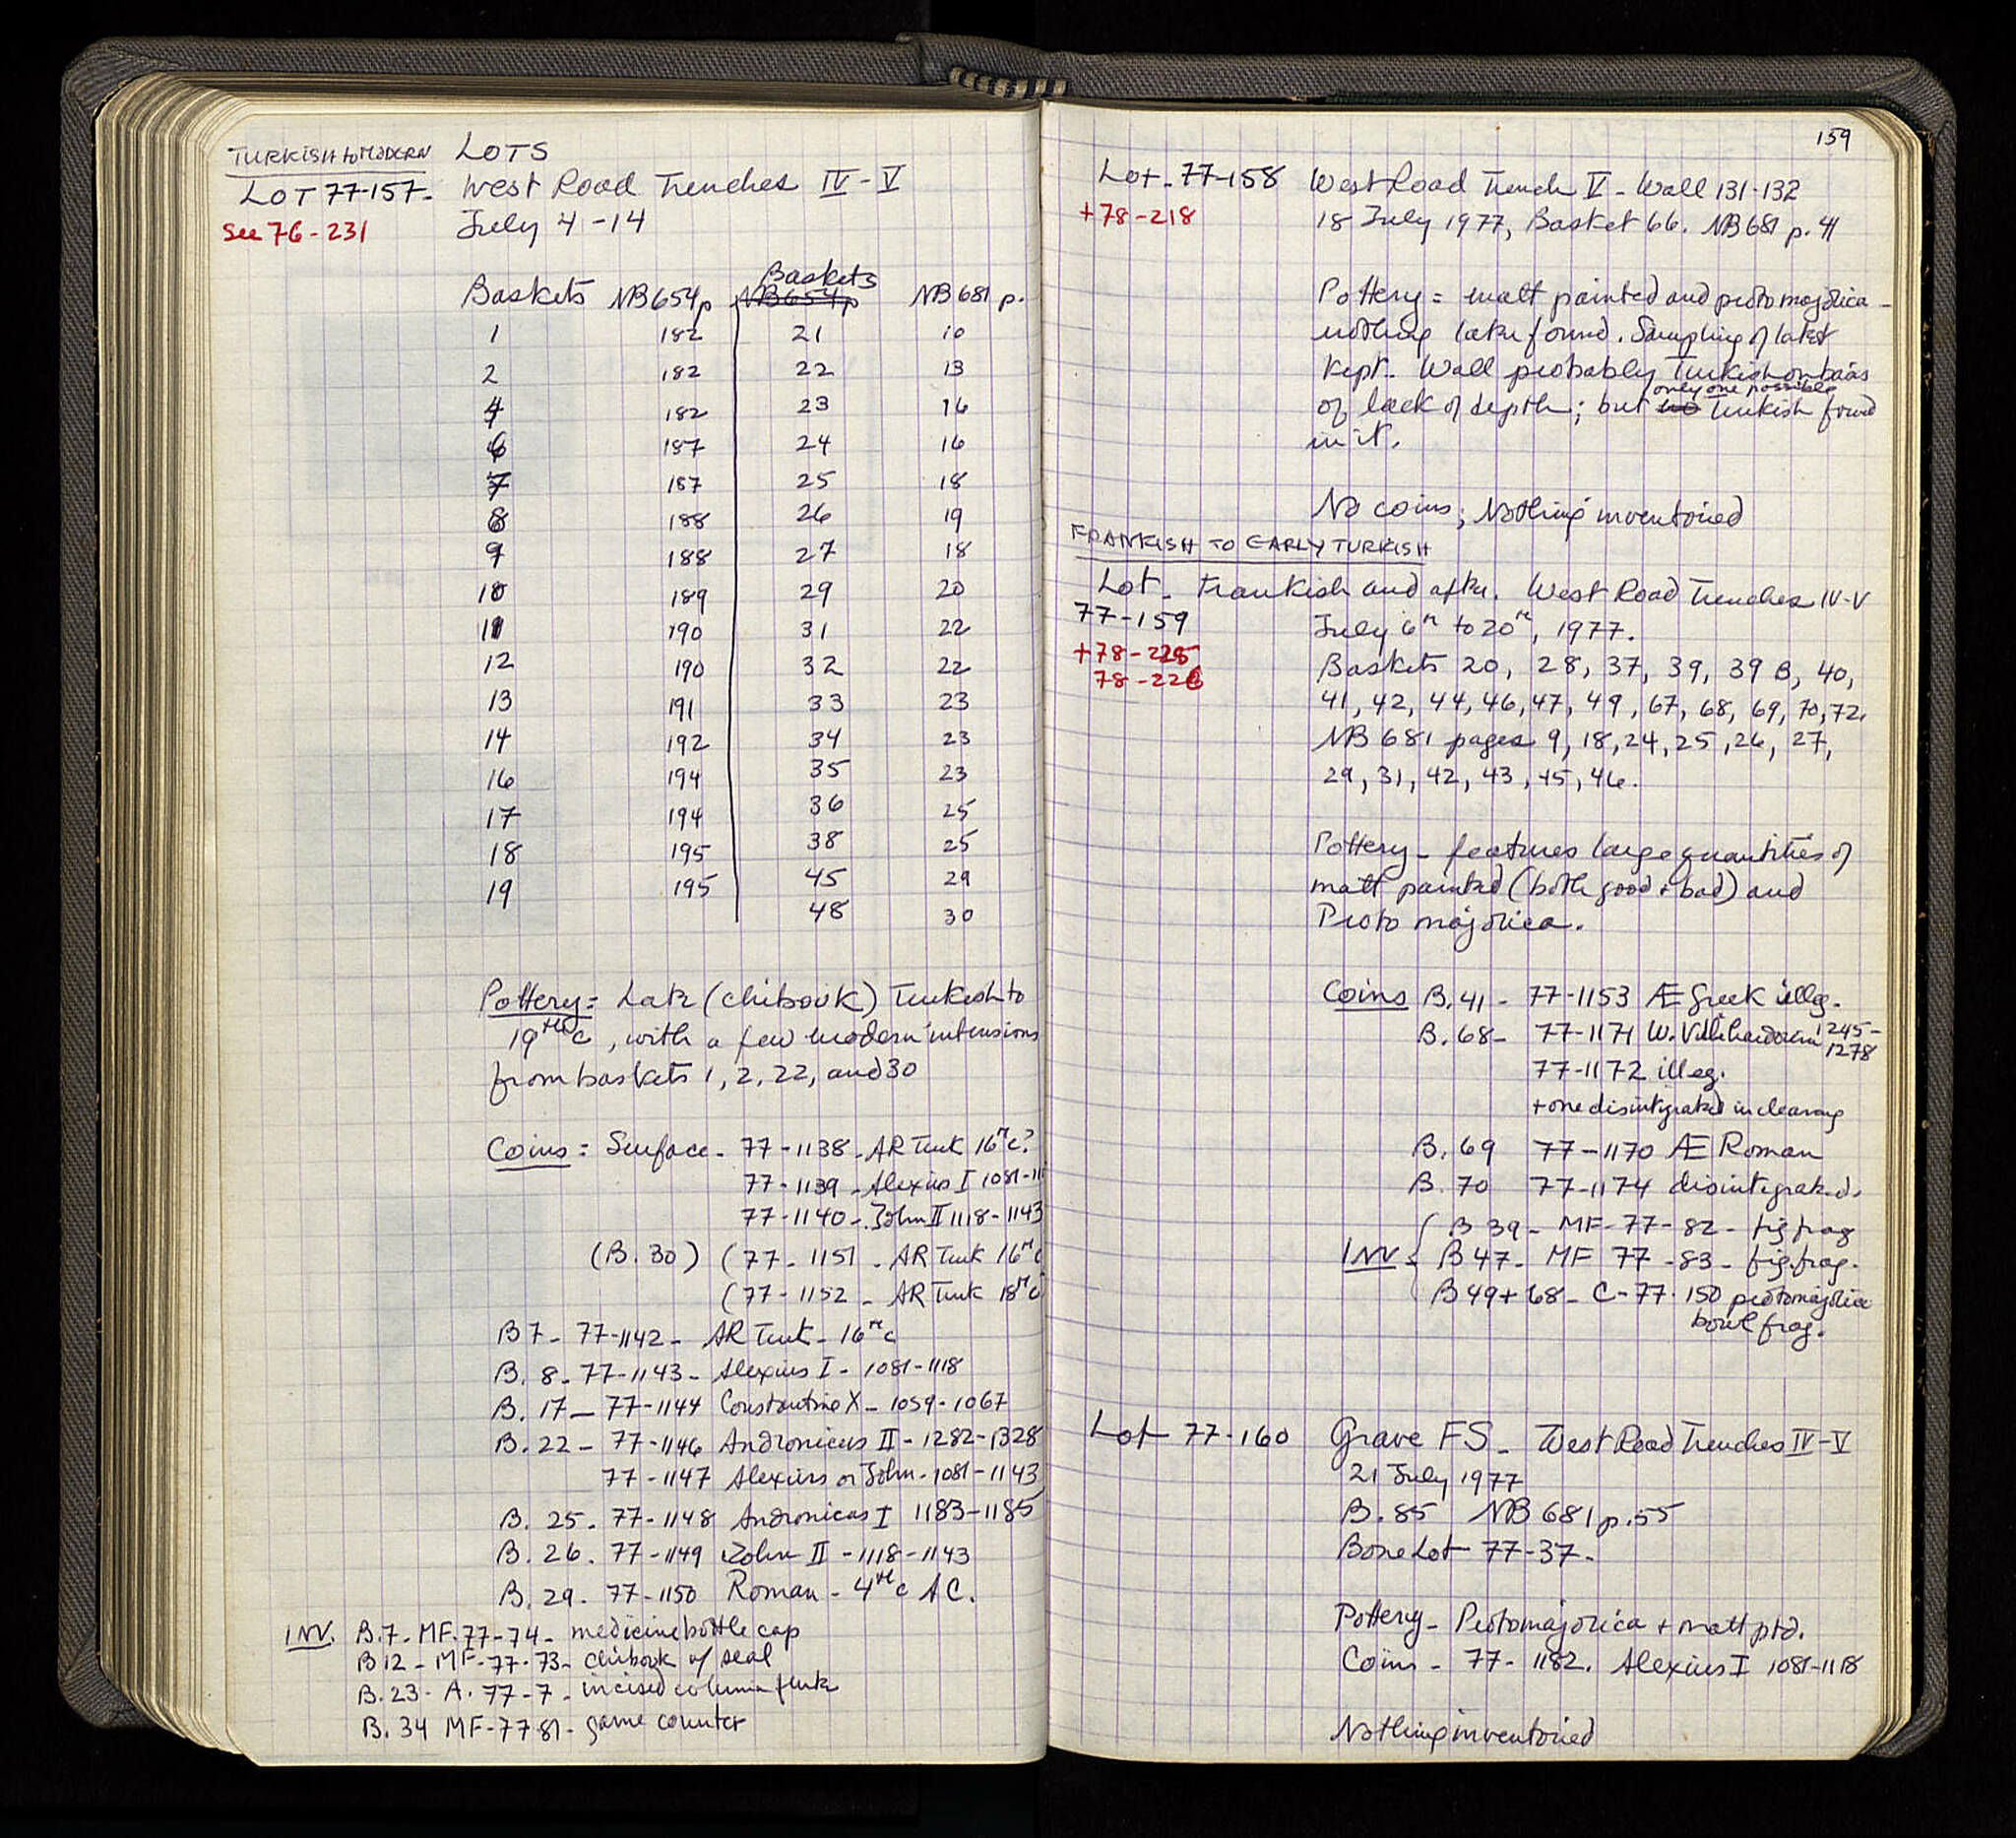 TURKISH to MODERN LOTS
LOT 77-157- West Road Trenches IV-V
See 76-231 July 4-14
Baskets NB654p Baskets NB654p NB 681 p.
1 182 21 10
2 182 22 13
4 182 23 16
6 187 24 16
7 187 25 18
8 188 26 19
9 188 27 18
10 189 29 20
11 190 31 22
12 190 32 22
13 191 33 23
14 192 34 23
16 194 35 23
17 194 36 25
18 195 38 25
19 195 45 29
48 30
Pottery = Late (chibouk) Turkish to
19th c, with a few modern intrusions
from baskets 1, 2, 22, and 30
Coins = Surface - 77-1138 - AR Turk 16th c?
77-1139 - Alexius I 1081-11
77-1140 - John II 1118-1143
(B. 30) (77-1151 - AR Turk 16th c
(77-1152 - AR Turk 18th c
B7- 77-1142 - AR Turk - 16th c
B. 8- 77-1143- Alexius I - 1081-1118
B. 17- 77-1144 Constantine X - 1059-1067
B. 22- 77-1146 Andronicus II - 1282-1328
77-1147 Alexius or John - 1081-1143
B. 25- 77-1148 Andronicus I 1183-1185
B. 26. 77-1149 John II - 1118-1143
B. 29- 77-1150 Roman - 4th c AC.
INV. B.7- MF-77-74- medicine bottle cap
B12- MF-77-73- chibouk w/ seal
B.23- A. 77-7- incised column flute
B. 34 MF-77 81- game counter
159
Lot- 77-158 West Road Trench V - Wall 131-132
+78-218 18 July 1977, Basket 66. NB 681 p. 41
Pottery = matt painted and protomajolica -
nothing later found. Sampling of latest
kept. Wall probably Turkish on basis
only one possible
of lack of depth; but no Turkish found
in it.
No coins; Nothing inventoried
FRANKISH TO EARLY TURKISH
Lot- Frankish and after. West Road Trenches IV-V
77-159 July 6th to 20th, 1977.
+78-225 Baskets 20, 28, 37, 39, 39 B, 40,
78-226 41, 42, 44, 46, 47, 49, 67, 68, 69, 70, 72.
NB 681 pages 9, 18, 24, 25, 26, 27,
29, 31, 42, 43, 45, 46.
Pottery - features large quantities of
matt painted (both good + bad) and
Proto majolica.
Coins B. 41 - 77-1153 Æ Greek illeg.
B. 68- 77-1171 W. Villehardouin 1245-
1278
77-1172 illeg.
+ one disintegrated in cleaning
B. 69 77-1170 Æ Roman
B. 70 77-1174 disintegrated.
B 39- MF-77-82- fig frag
INV B 47- MF 77-83- fig. frag.
B 49+68- C-77-150 protomajolica
bowl frag.
Lot 77-160 Grave FS- West Road Trenches IV-V
21 July 1977
B. 85 NB 681 p. 55
Bone Lot 77-37.
Pottery - Protomajolica + matt ptd.
Coins - 77-1182. Alexius I 1081-1118
Nothing inventoried